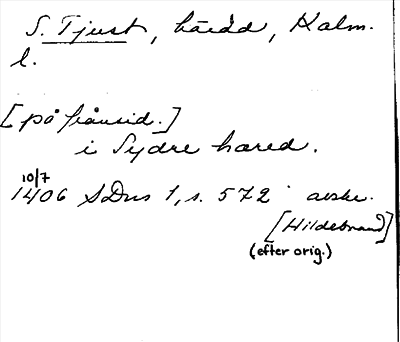 S. Tjust, härad, Kalm.
l.
[på frånsid.]
i Sydre hared.
10/7
1406 SDns 1, s. 572 avskr.
[Hildebrand]
(efter orig.)